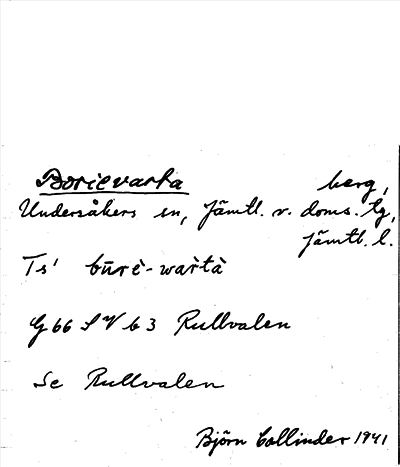 Borievarta berg,
Undersåkers sn, Jämtl. v. doms. tg,
Jämtl. l.
Ts' būrè-wàrtà
G 66 SV b 3 Rullvalen
Se Rullvalen
Björn Collinder 1941